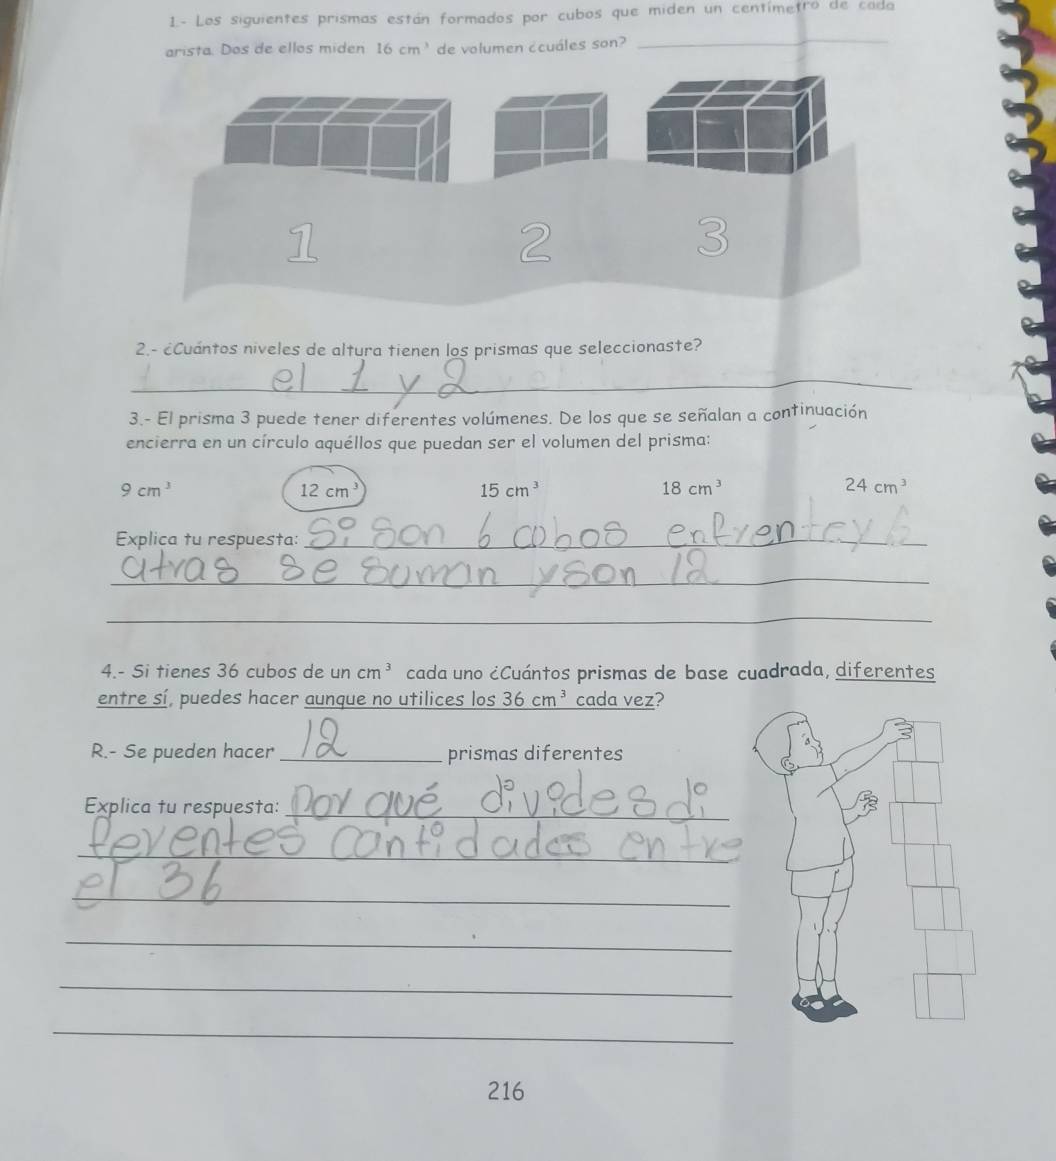 1.- Los siguientes prismas están formados por cubos que miden un centímetro de cada
arista. Dos de ellos miden 16 cm³ de volumen ¿cuáles son?
1 2 3
2.- ¿Cuántos niveles de altura tienen los prismas que seleccionaste?
el 1 y 2
3.- El prisma 3 puede tener diferentes volúmenes. De los que se señalan a continuación
encierra en un círculo aquéllos que puedan ser el volumen del prisma:
9 cm³ 12 cm³ 15 cm³ 18 cm³ 24 cm³
Explica tu respuesta: Si son 6 cobos enfrente y 6
atras se suman y son 12
4.- Si tienes 36 cubos de un cm³ cada uno ¿Cuántos prismas de base cuadrada, diferentes
entre sí, puedes hacer aunque no utilices los 36 cm³ cada vez?
R.- Se pueden hacer 12 prismas diferentes
Explica tu respuesta: por qué divides di
ferentes cantidades entre
el 36
216